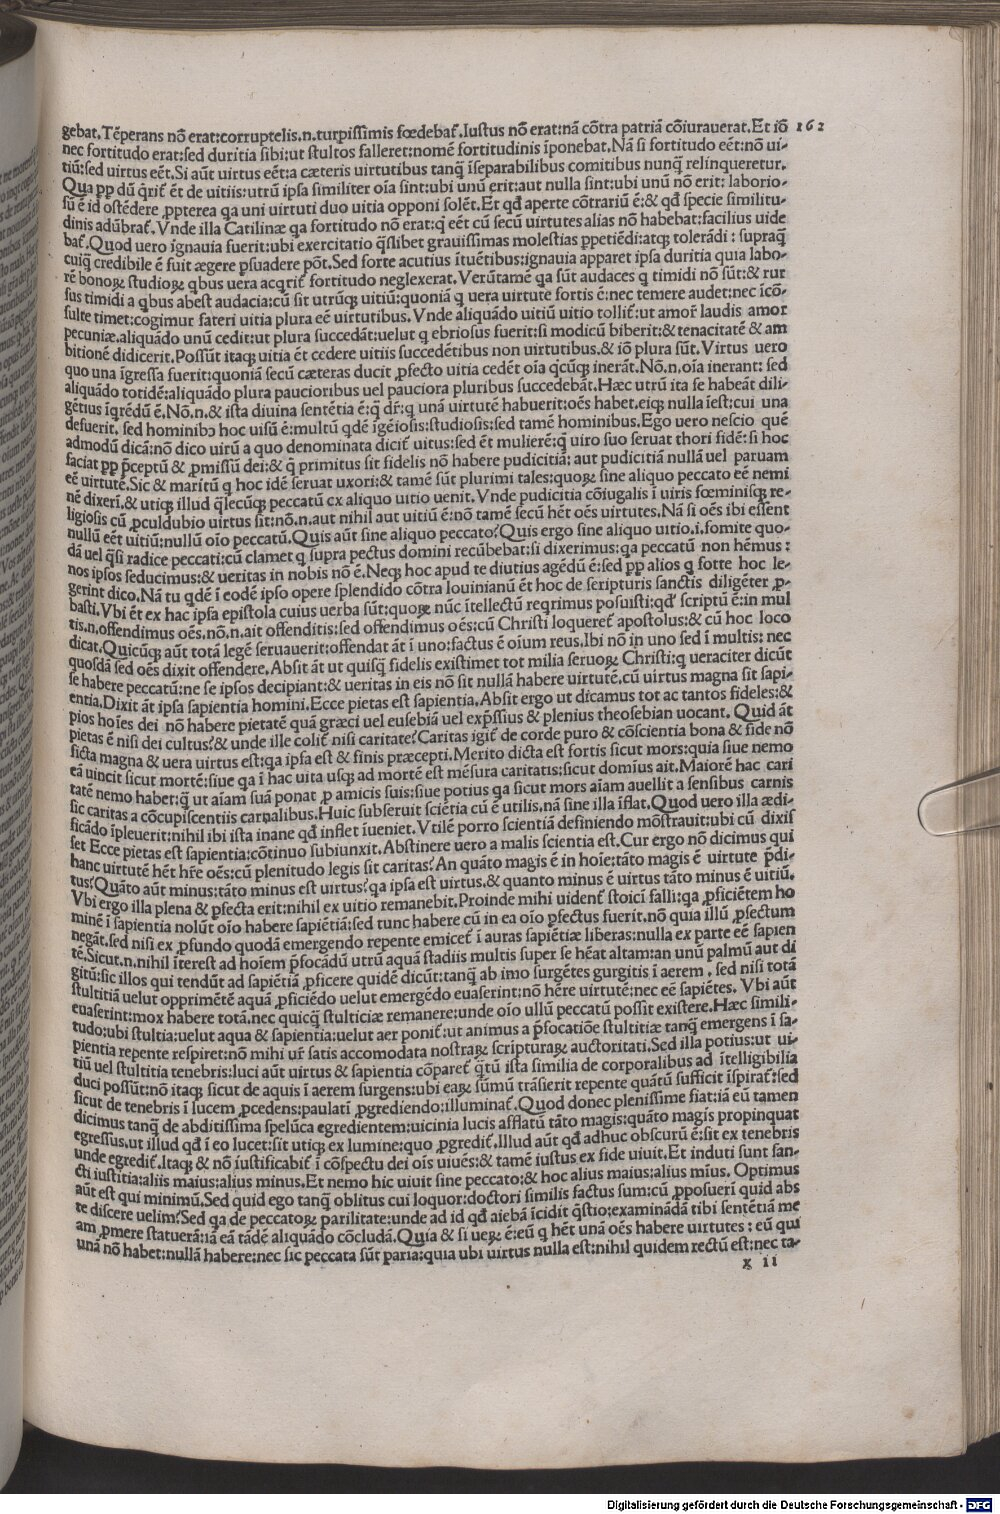 gebat.Tēperans nō erat:corruptelis.n.turpissimis fœdebať.Iustus nō erat:nā cōtra patriā cōiurauerat.Et iō 162
nec fortitudo erat:sed duritia sibi:ut stultos falleret:nomē fortitudinis īponebat.Nā si fortitudo eēt:nō ui-
tiū:sed uirtus eēt.Si aūt uirtus eēt:a cæteris uirtutibus tanq̄ īseparabilibus comitibus nunq̄ relinqueretur.
Qua ꝓp dū q̄riť ēt de uitiis:utrū ipsa similiter oīa sint:ubi unū erit:aut nulla sint:ubi unū nō erit: laborio-
sū ē id ostēdere ꝓpterea qa uni uirtuti duo uitia opponi solēt.Et qđ aperte cōtrariū ē:& qđ specie similitu-
dinis adūbrať.Vnde illa Catilinæ qa fortitudo nō erat:q̄ eēt cū secū uirtutes alias nō habebat:facilius uide
bať.Quod uero ignauia fuerit:ubi exercitatio q̄slibet grauissimas molestias ꝑpetiēdi:atqꝫ tolerādi : supraq̄
cuiq̄ credibile ē fuit ægere ꝑsuadere pōt.Sed forte acutius ītuētibus:ignauia apparet ipsa duritia quia labo-
rē bonoꝝ studioꝝ qbus uera acqriť fortitudo neglexerat.Verūtamē qa sūt audaces q timidi nō sūt:& rur
sus timidi a qbus abest audacia:cū sit utrūqꝫ uitiū:quoniā q uera uirtute fortis ē:nec temere audet:nec īcō-
sulte timet:cogimur fateri uitia plura eē uirtutibus. Vnde aliquādo uitiū uitio tolliť:ut amor̄ laudis amor
pecuniæ.aliquādo unū cedit:ut plura succedāt:uelut q ebriosus fuerit:si modicū biberit:& tenacitatē & am
bitionē didicerit.Possūt itaqꝫ uitia ēt cedere uitiis succedētibus non uirtutibus.& iō plura sūt. Virtus uero
quo una īgressa fuerit:quoniā secū cæteras ducit ꝓfecto uitia cedēt oīa q̄cūqꝫ inerāt.Nō.n.oīa inerant: sed
aliquādo totidē:aliquādo plura paucioribus uel pauciora pluribus succedebāt.Hæc utrū ita se habeāt dili-
gētius īq̄rēdū ē.Nō.n.& ista diuina sentētia ē:q̄ dr̄:q unā uirtutē habuerit:oēs habet.eiqꝫ nulla īest:cui una
defuerit. sed hominibꝰ hoc uisū ē:multū qdē īgēiosis:studiosis:sed tamē hominibus.Ego uero nescio quē
admodū dicā:nō dico uirū a quo denominata diciť uitus:sed ēt mulierē:q̄ uiro suo seruat thori fidē:si hoc
faciat ꝓp p̄ceptū & ꝓmissū dei:& q̄ primitus sit fidelis nō habere pudicitiā: aut pudicitiā nullā uel paruam
eē uirtutē.Sic & maritū q hoc idē seruat uxori:& tamē sūt plurimi tales:quoꝝ sine aliquo peccato eē nemi
nē dixerī.& utiqꝫ illud q̄lecūqꝫ peccatū ex aliquo uitio uenit.Vnde pudicitia cōiugalis ī uiris fœminisqꝫ re-
ligiosis cū ꝓculdubio uirtus sit:nō.n.aut nihil aut uitiū ē:nō tamē secū hēt oēs uirtutes.Nā si oēs ibi essent
nullū eēt uitiū:nullū oīo peccatū.Quis aūt sine aliquo peccato?Quis ergo sine aliquo uitio.i.fomite quo-
dā uel q̄si radice peccati:cū clamet q supra pectus domini recūbebat:si dixerimus:qa peccatū non hēmus :
nos ipsos seducimus:& ueritas in nobis nō ē.Neqꝫ hoc apud te diutius agēdū ē:sed ꝓp alios q fotte hoc le-
gerint dico.Nā tu qdē ī eodē ipso opere splendido cōtra Iouinianū ēt hoc de scripturis sanctis diligēter ꝓ-
basti.Vbi ēt ex hac ipsa epistola cuius uerba sūt:quoꝝ nūc ītellectū reqrimus posuisti:qđ scriptū ē:in mul
tis.n.offendimus oēs.nō.n.ait offenditis:sed offendimus oēs:cū Christi loquereť apostolus:& cū hoc loco
dicat.Quicūqꝫ aūt totā legē seruauerit:offendat āt ī uno:factus ē oīum reus.Ibi nō in uno sed ī multis: nec
quosdā sed oēs dixit offendere.Absit āt ut quisq̄ fidelis existimet tot milia seruoꝝ Christi:q ueraciter dicūt
se habere peccatū:ne se ipsos decipiant:& ueritas in eis nō sit nullā habere uirtutē.cū uirtus magna sit sapi-
entia.Dixit āt ipsa sapientia homini.Ecce pietas est sapientia.Absit ergo ut dicamus tot ac tantos fideles:&
pios hoīes dei nō habere pietatē quā græci uel eusebiā uel exp̄ssius & plenius theosebian uocant. Quid āt
pietas ē nisi dei cultus?& unde ille coliť nisi caritate?Caritas igiť de corde puro & cōscientia bona & fide nō
ficta magna & uera uirtus est:qa ipsa est & finis præcepti.Merito dicta est fortis sicut mors:quia siue nemo
eā uincit sicut mortē:siue qa ī hac uita usqꝫ ad mortē est mēsura caritatis:sicut domīus ait.Maiorē hac cari
tatē nemo habet:q̄ ut aīam suā ponat ꝓ amicis suis:siue potius qa sicut mors aīam auellit a sensibus carnis
sic caritas a cōcupiscentiis carnalibus.Huic subseruit sciētia cū ē utilis.nā sine illa īflat.Quod uero illa ædi-
ficādo īpleuerit:nihil ibi ista inane qđ inflet īueniet.Vtilē porro scientiā definiendo mōstrauit:ubi cū dixis
set Ecce pietas est sapientia:cōtinuo subiunxit.Abstinere uero a malis scientia est.Cur ergo nō dicimus qui
hanc uirtutē hēt hr̄e oēs:cū plenitudo legis sit caritas?An quāto magis ē in hoīe:tāto magis ē uirtute p̄di-
tus?Quāto aūt minus:tāto minus est uirtus?qa ipsa est uirtus.& quanto minus ē uirtus tāto minus ē uitiū.
Vbi ergo illa plena & ꝑfecta erit:nihil ex uitio remanebit.Proinde mihi uidenť stoici falli:qa ꝓficiētem ho
minē ī sapientia nolūt oīo habere sapiētiā:sed tunc habere cū in ea oīo ꝑfectus fuerit.nō quia illū ꝓfectum
negāt.sed nisi ex ꝓfundo quodā emergendo repente emiceť ī auras sapiētiæ liberas:nulla ex parte eē sapien
tē.Sicut.n.nihil īterest ad hoīem p̄focādū utrū aquā stadiis multis super se hēat altam:an unū palmū aut di
gitū:sic illos qui tendūt ad sapiētiā ꝓficere quidē dicūt:tanq̄ ab imo surgētes gurgitis ī aerem . sed nisi totā
stultitiā uelut opprimētē aquā ꝓficiēdo uelut emergēdo euaserint:nō hēre uirtutē:nec eē sapiētes. Vbi aūt
euaserint:mox habere totā.nec quicq̄ stulticiæ remanere:unde oīo ullū peccatū possit existere.Hæc simili-
tudo:ubi stultia:uelut aqua & sapientia:uelut aer poniť:ut animus a p̄focatiōe stultitiæ tanq̄ emergens ī sa-
pientia repente respiret:nō mihi ur̄ satis accomodata nostraꝝ scripturaꝝ auctoritati.Sed illa potius:ut ui-
tiū uel stultitia tenebris:luci aūt uirtus & sapientia cōpareť q̄tū ista similia de corporalibus ad ītelligibilia
duci possūt:nō itaqꝫ sicut de aquis ī aerem surgens:ubi eaꝝ sūmū trāsierit repente quātū sufficit īspirať:sed
sicut de tenebris ī lucem ꝓcedens:paulatī ꝓgrediendo:illuminať.Quod donec plenissime fiat:iā eū tamen
dicimus tanq̄ de abditissima spelūca egredientem:uicinia lucis afflatū tāto magis:quāto magis propinquat
egressus.ut illud qđ ī eo lucet:sit utiqꝫ ex lumine:quo ꝓgrediť.Illud aūt qđ adhuc obscurū ē:sit ex tenebris
unde egrediť.Itaqꝫ & nō iustificabiť ī cōspectu dei oīs uiuēs:& tamē iustus ex fide uiuit.Et induti sunt san-
cti iustitia:aliis maius:alius minus.Et nemo hic uiuit sine peccato:& hoc alius maius:alius mīus. Optimus
aūt est qui minimū.Sed quid ego tanq̄ oblitus cui loquor:doctori similis factus sum:cū ꝓposuerī quid abs
te discere uelim?Sed qa de peccatoꝝ parilitate:unde ad id qđ aiebā īcidit q̄stio:examinādā tibi sentētiā me
am ꝓmere statuerā:iā eā tādē aliquādo cōcludā.Quia & si ueꝝ ē:eū q hēt unā oēs habere uirtutes : eū qui
unā nō habet:nullā habere:nec sic peccata sūt paria:quia ubi uirtus nulla est:nihil quidem rectū est:nec ta-
x ii
Digitalisierung gefördert durch die Deutsche Forschungsgemeinschaft - DFG